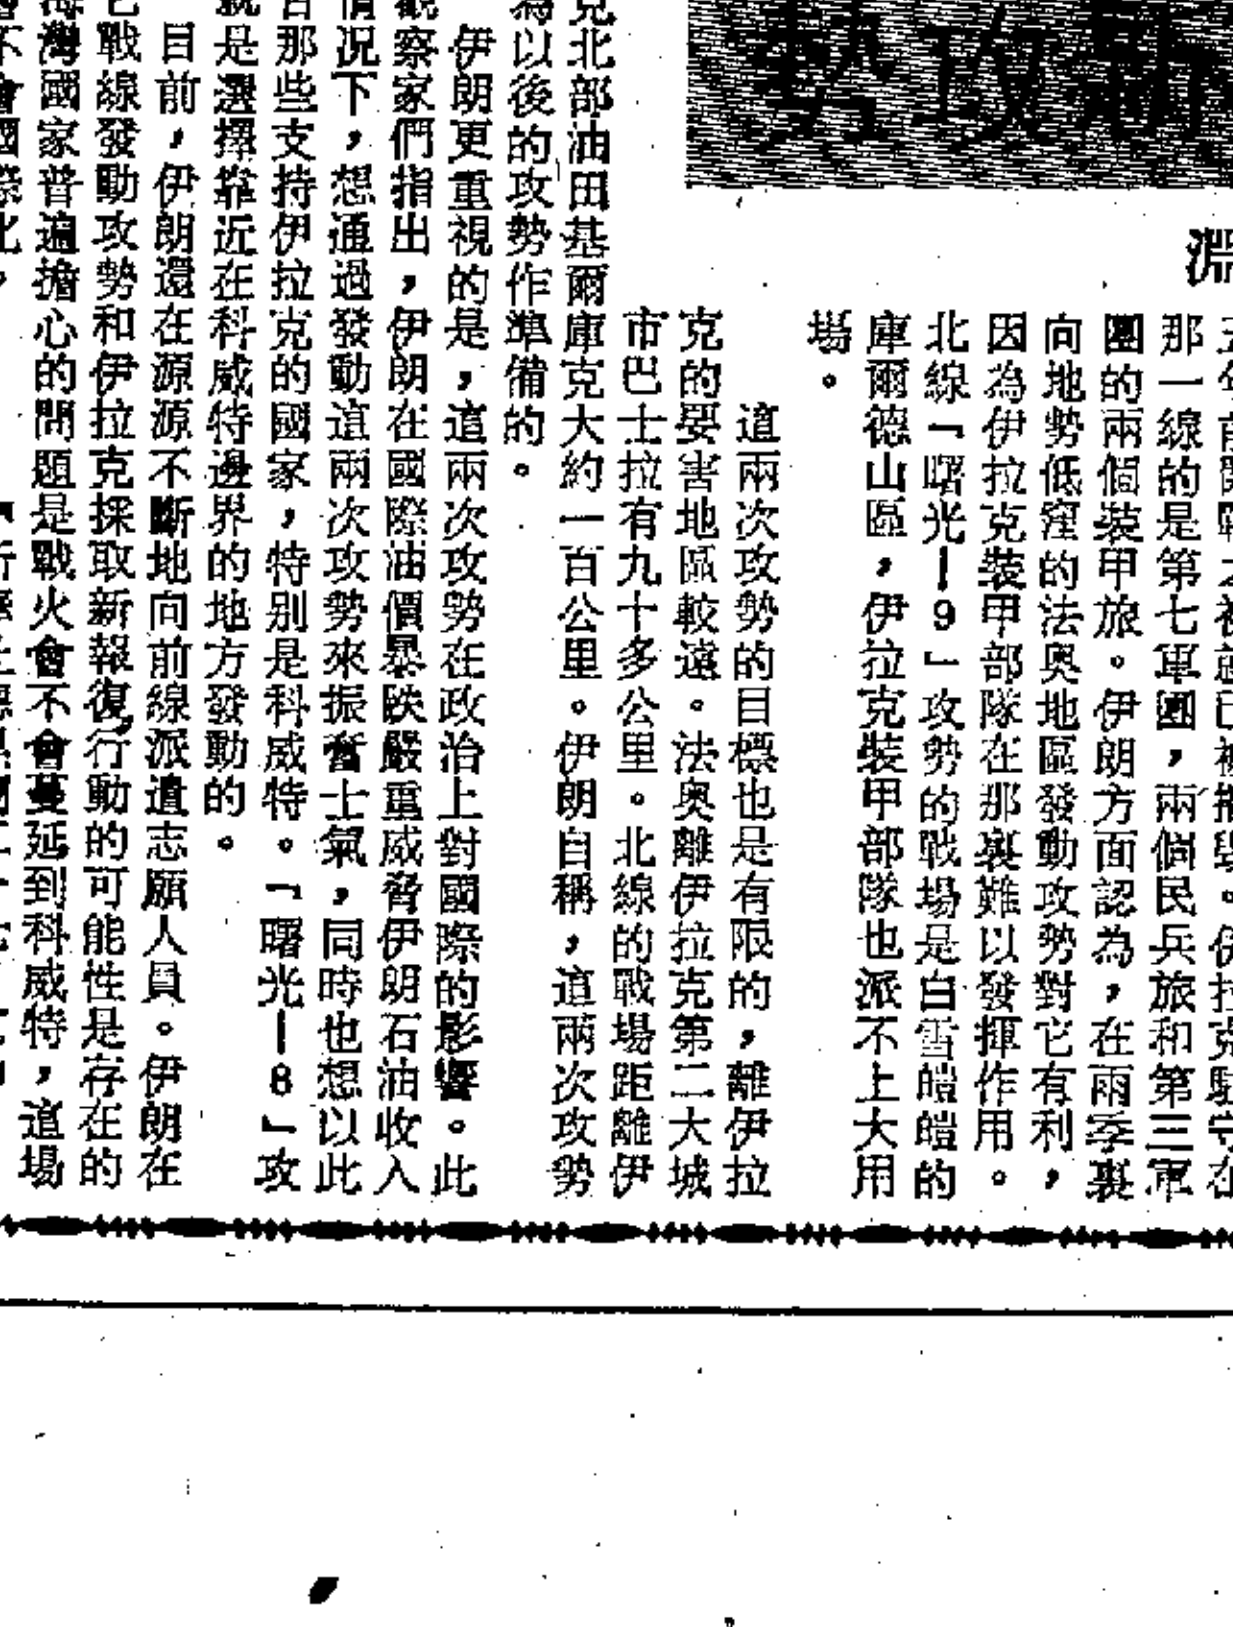 新攻勢
淵
那一線的是第七軍團，兩個民兵旅和第三軍
團的兩個裝甲旅。伊朗方面認為，在雨季裏
向地勢低窪的法奧地區發動攻勢對它有利，
因為伊拉克裝甲部隊在那裏難以發揮作用。
北線「曙光—9」攻勢的戰場是白雪皚皚的
庫爾德山區，伊拉克裝甲部隊也派不上大用
場。
這兩次攻勢的目標也是有限的，離伊拉
克的要害地區較遠。法奧離伊拉克第二大城
市巴士拉有九十多公里。北線的戰場距離伊
克北部油田基爾庫克大約一百公里。伊朗自稱，這兩次攻勢
為以後的攻勢作準備的。
伊朗更重視的是，這兩次攻勢在政治上對國際的影響。此
觀察家們指出，伊朗在國際油價暴跌嚴重威脅伊朗石油收入
情況下，想通過發動這兩次攻勢來振奮士氣，同時也想以此
告那些支持伊拉克的國家，特別是科威特。「曙光—8」攻
就是選擇靠近在科威特邊界的地方發動的。
目前，伊朗還在源源不斷地向前線派遣志願人員。伊朗在
它戰線發動攻勢和伊拉克採取新報復行動的可能性是存在的
海灣國家普遍擔心的問題是戰火會不會蔓延到科威特，這場
會不會國際化，